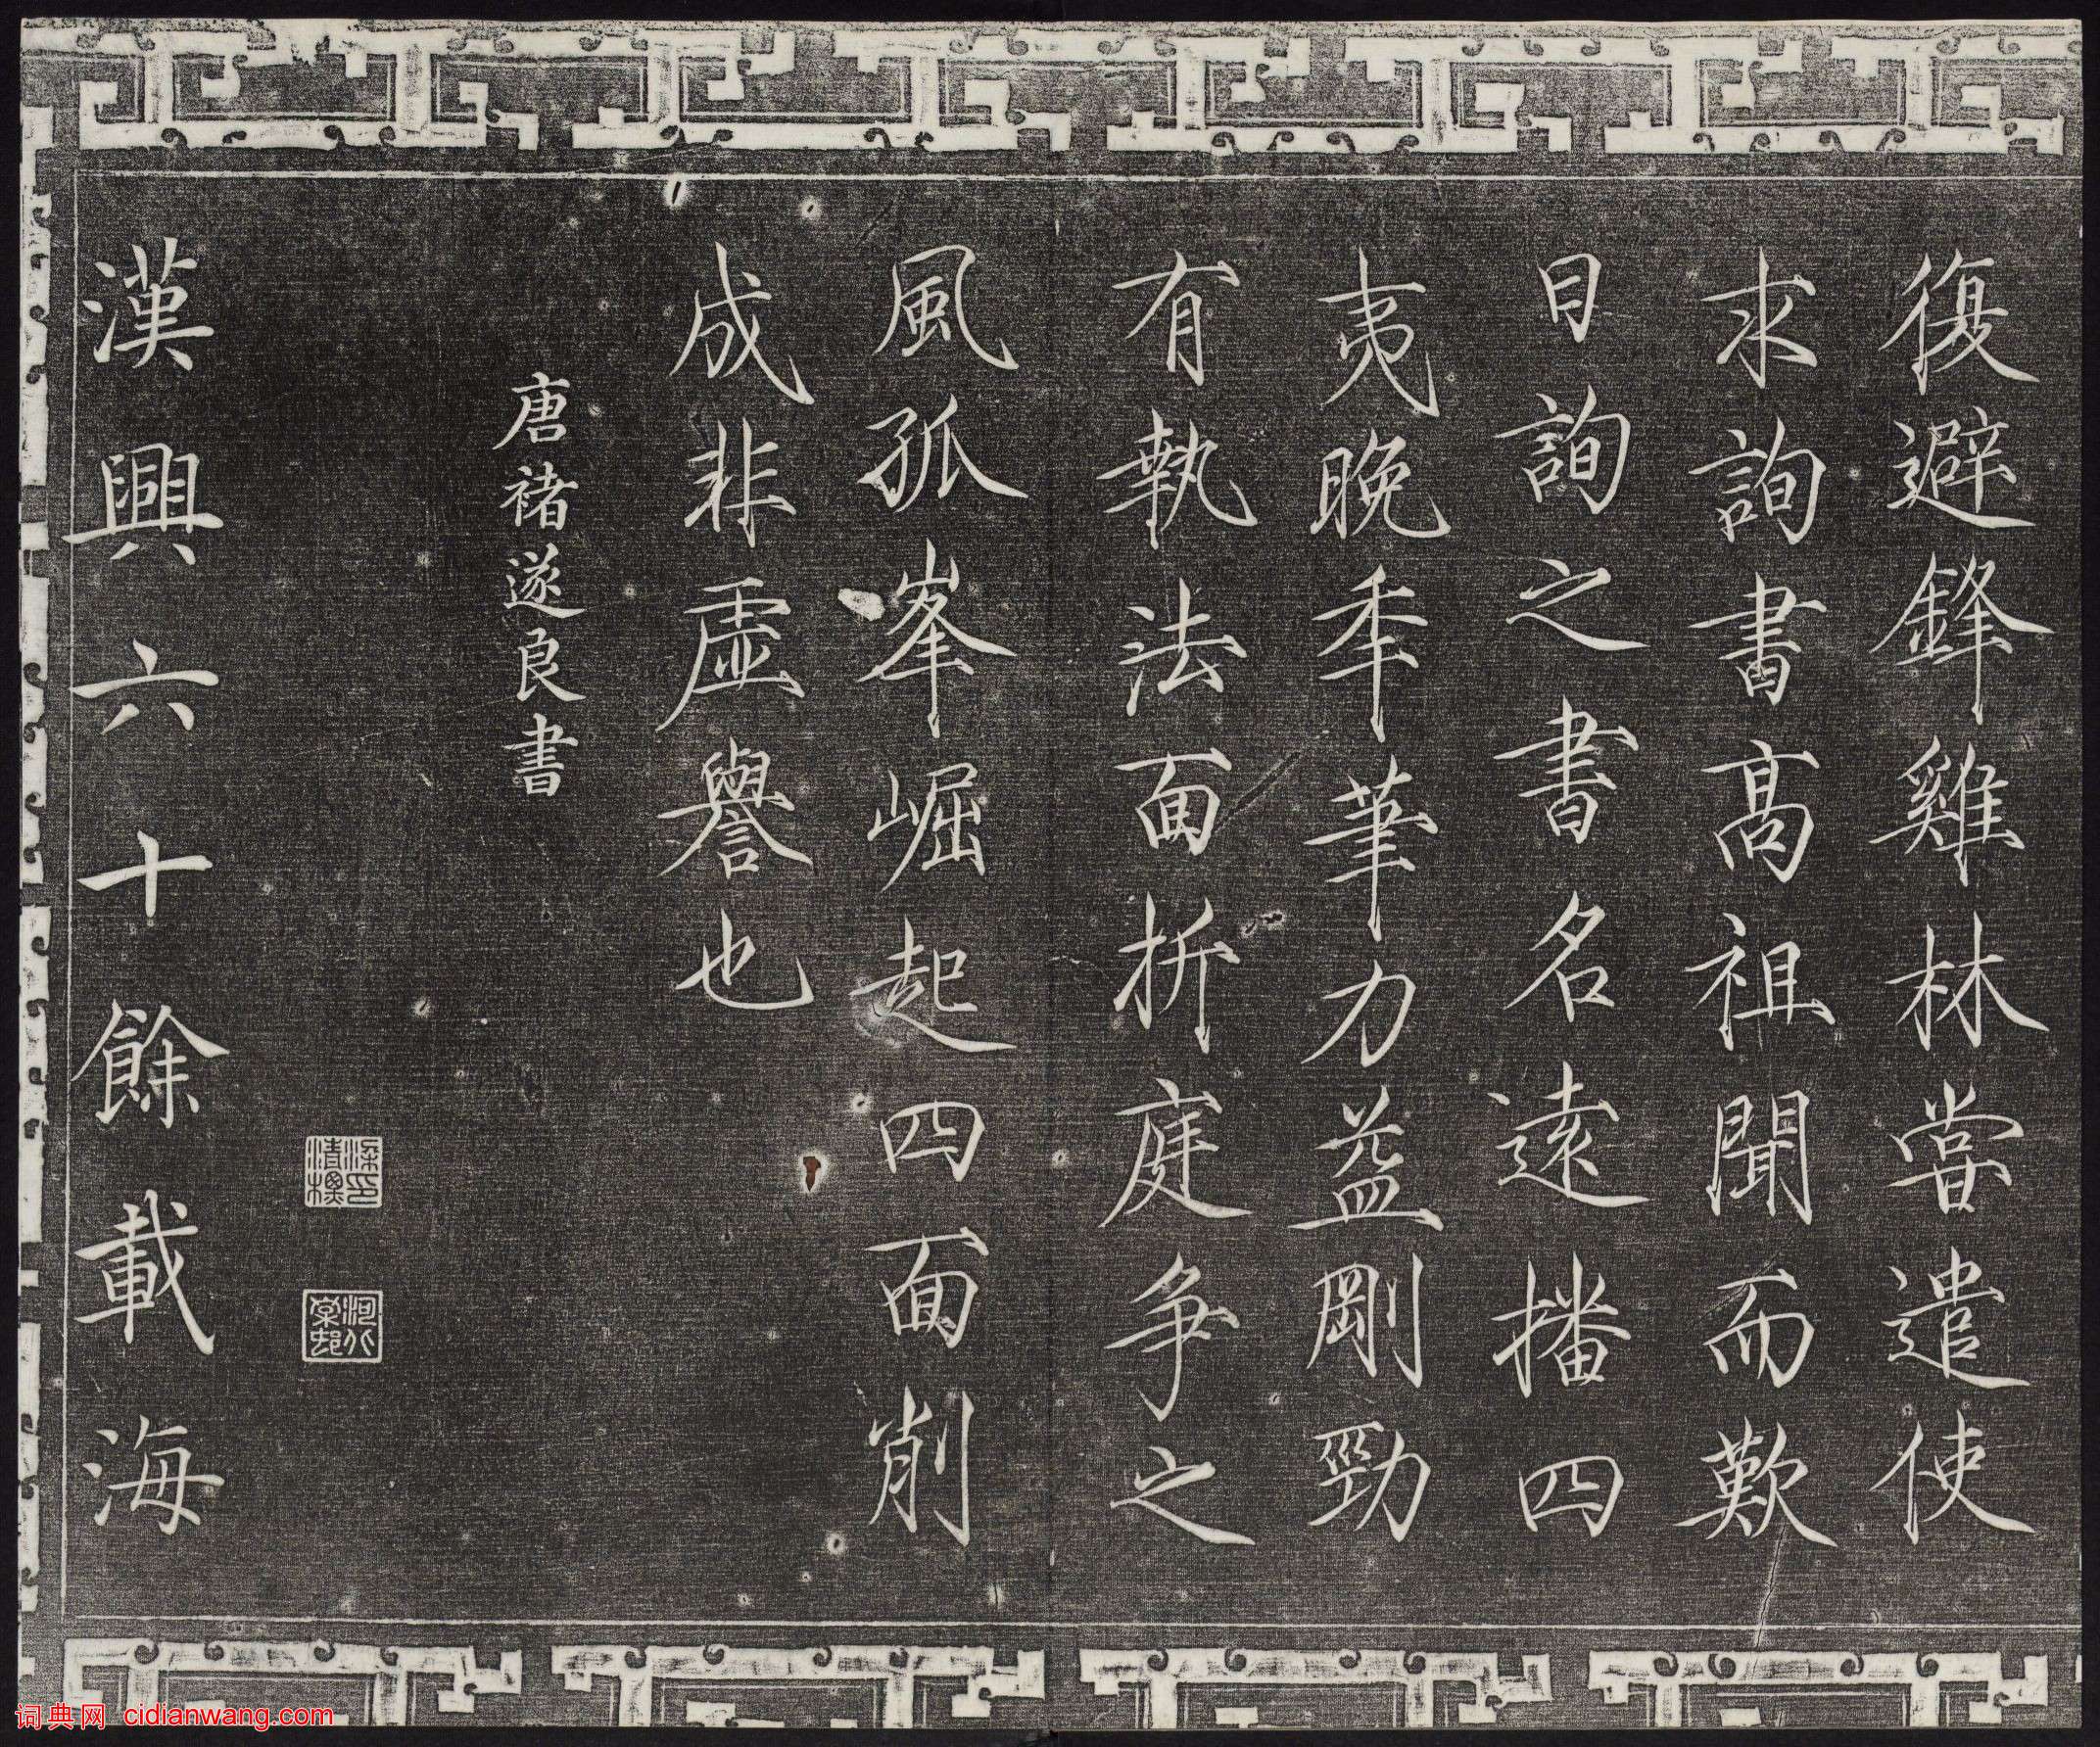 復避鋒雞林嘗遣使
求詢書高祖聞而歎
曰詢之書名遠播四
夷晚年筆力益剛勁
有執法面折庭争之
風孤峯崛起四面削
成非虛譽也
唐褚遂良書
漢興六十餘載海
词典网 cidianwang.com